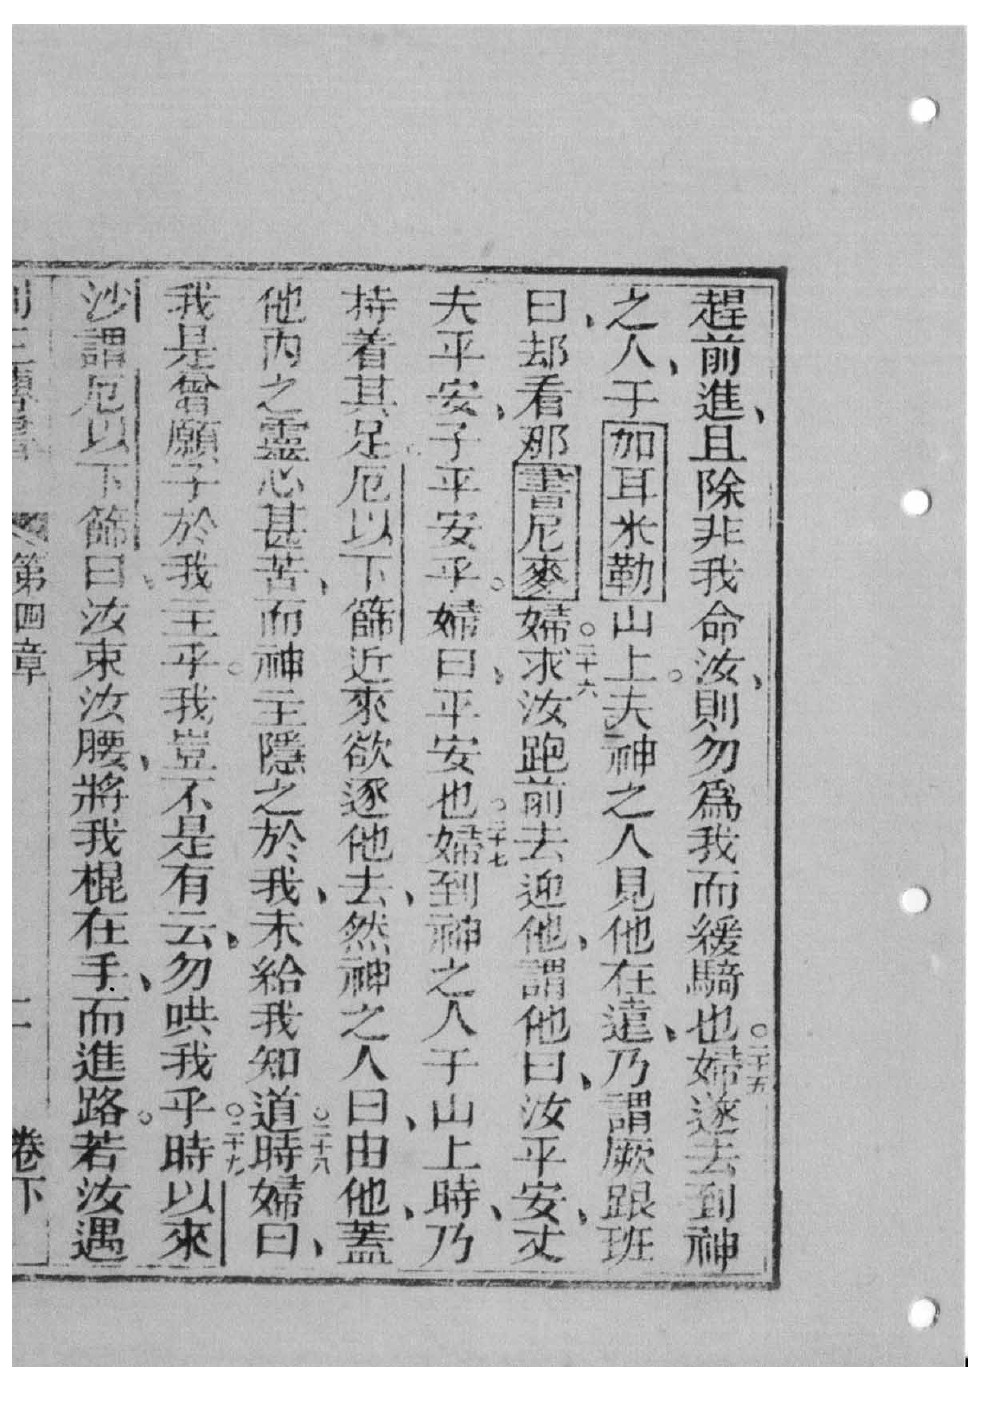 趕前進、且除非我命汝、則勿爲我而緩騎也○二十五婦遂去到神
之人、于加耳米勒山上。夫神之人見他在遠、乃謂厥跟班
曰、却看那書尼麥婦、○二十六求汝跑前去迎他、謂他曰、汝平安、丈
夫平安、子平安乎。婦曰、平安也○二十七婦到神之人于山上時、乃
持着其足。厄以下篩近來欲逐他去、然神之人曰、由他、蓋
他內之靈心甚苦、而神主隱之於我、未給我知道○二十八時婦曰、
我是曾願子於我主乎。我豈不是有云、勿哄我乎○二十九時以來
沙謂厄以下篩曰、汝束汝腰、將我棍在手、而進路。若汝遇
第四章 二 卷下